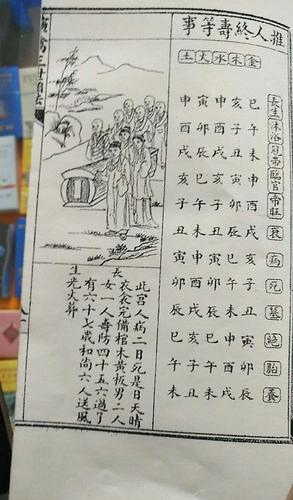 推人終壽等事
金木水火土
長生沐浴冠帶臨官帝旺衰病死墓絕胎養
巳午未申酉戌亥子丑寅卯辰
亥子丑寅卯辰巳午未申酉戌
寅卯辰巳午未申酉戌亥子丑
申酉戌亥子丑寅卯辰巳午未
此宮人病二日死是日天晴
衣衾完備棺木黃板男二人
長女一人壽防四十五六過了
有六十七歲和尚六人送風
生光火葬
三世相法